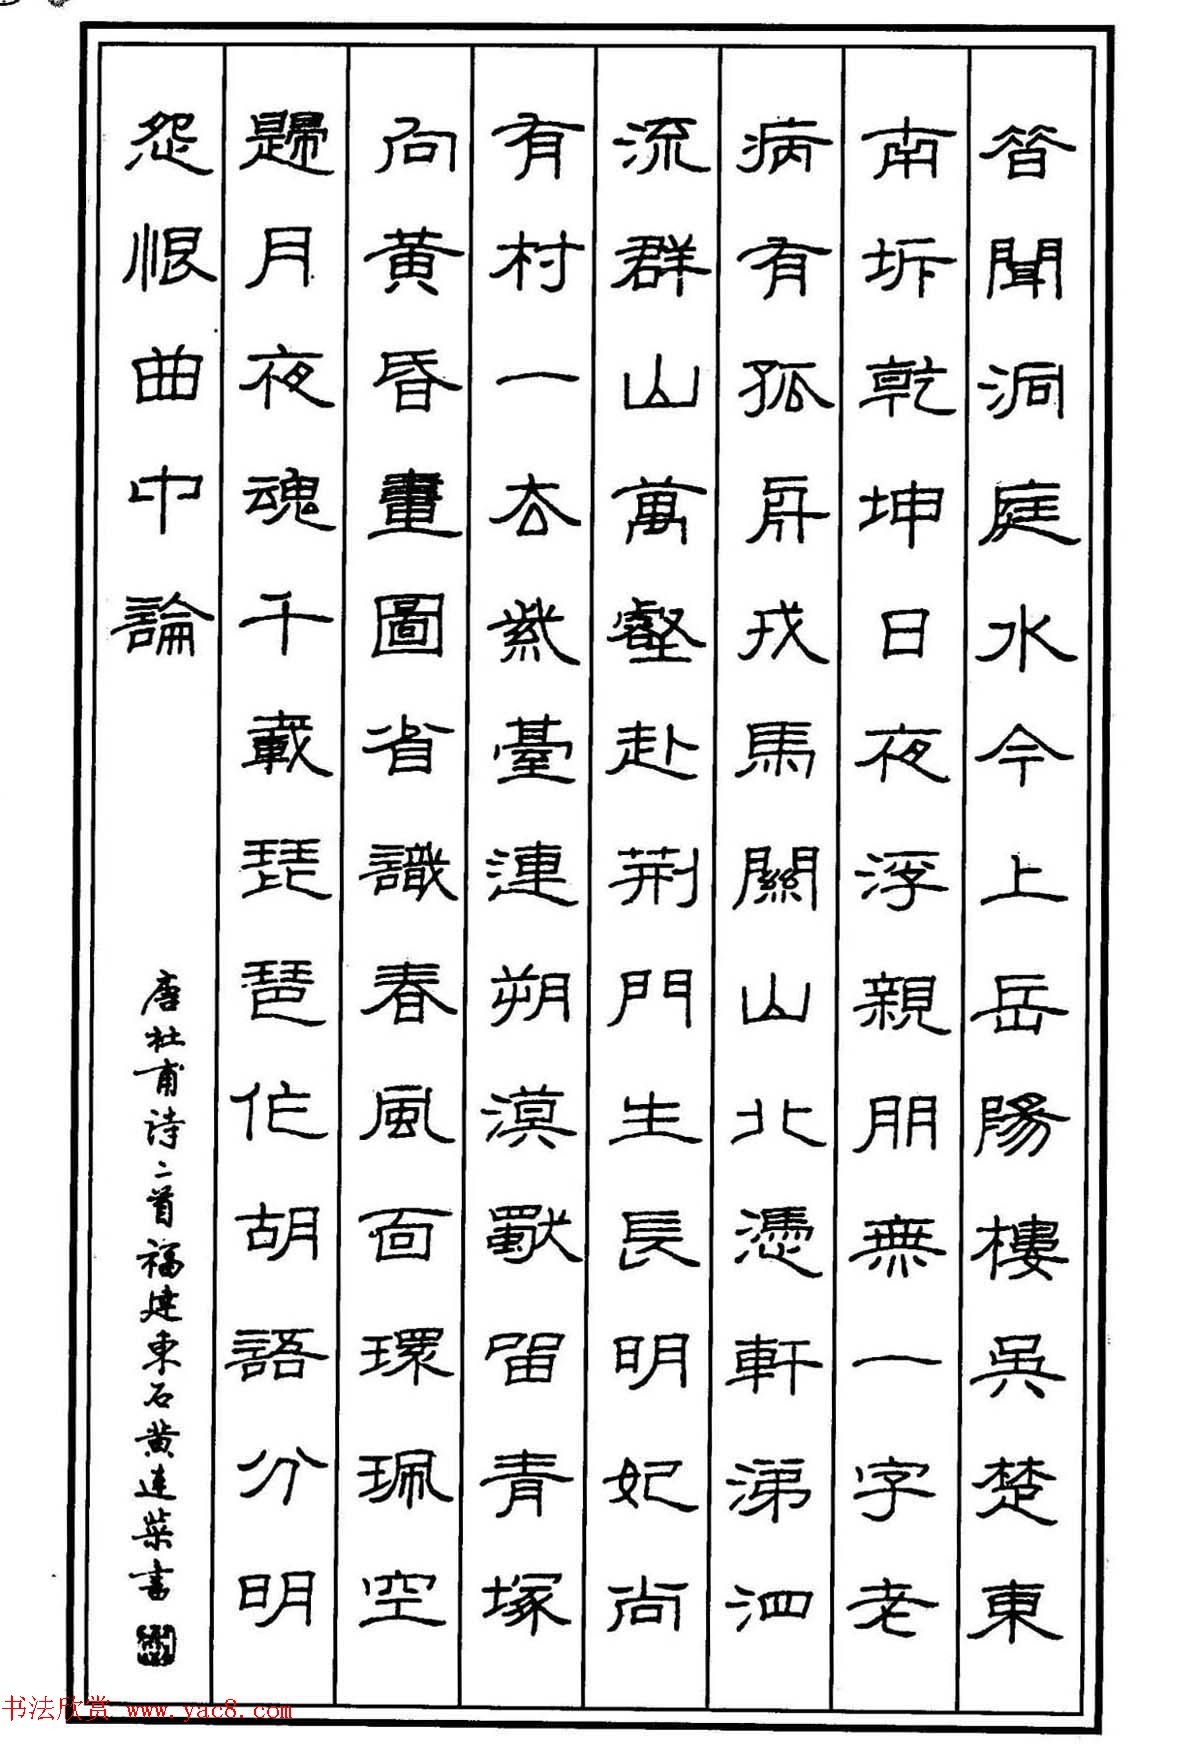 昔聞洞庭水今上岳陽樓吳楚東
南坼乾坤日夜浮親朋無一字老
病有孤舟戎馬關山北憑軒涕泗
流群山萬壑赴荆門生長明妃尚
有村一去紫臺連朔漠獨留青塚
向黃昏畫圖省識春風面環珮空
歸月夜魂千載琵琶作胡語分明
怨恨曲中論
唐杜甫诗二首福建東石黄连柴书
书法欣赏 www.yac8.com